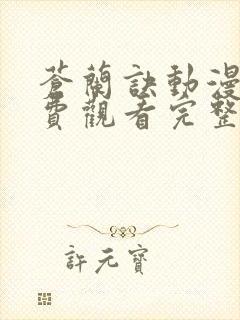 蒼蘭訣動漫
費觀看完整
許元寶